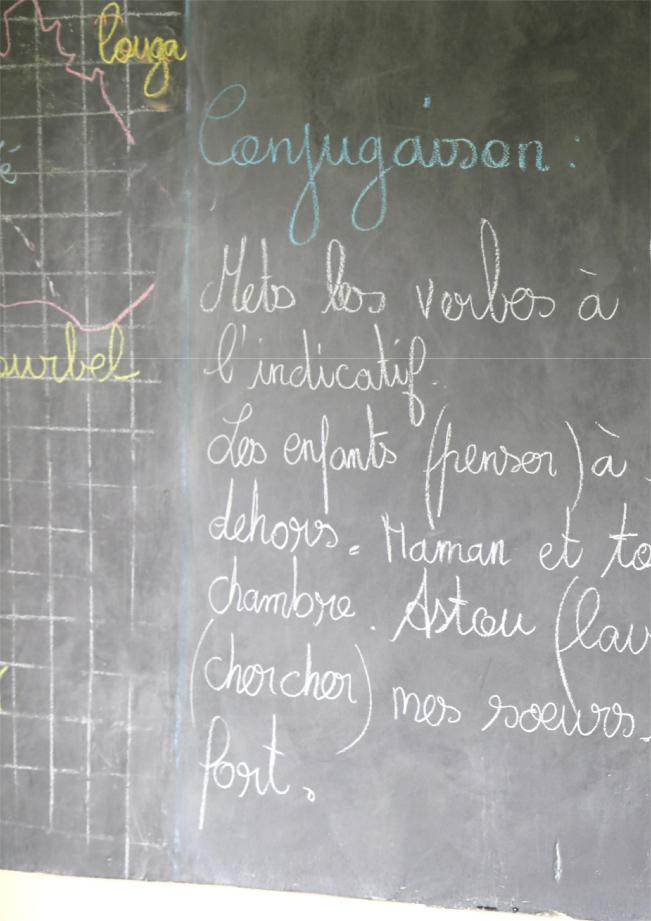 Louga
Conjugaison :
Mets les verbes à
l'indicatif.
Les enfants (penser) à
dehors. Maman et to
chambre. Astou (lav
(chercher) mes soeurs.
fort.
é
ourbel